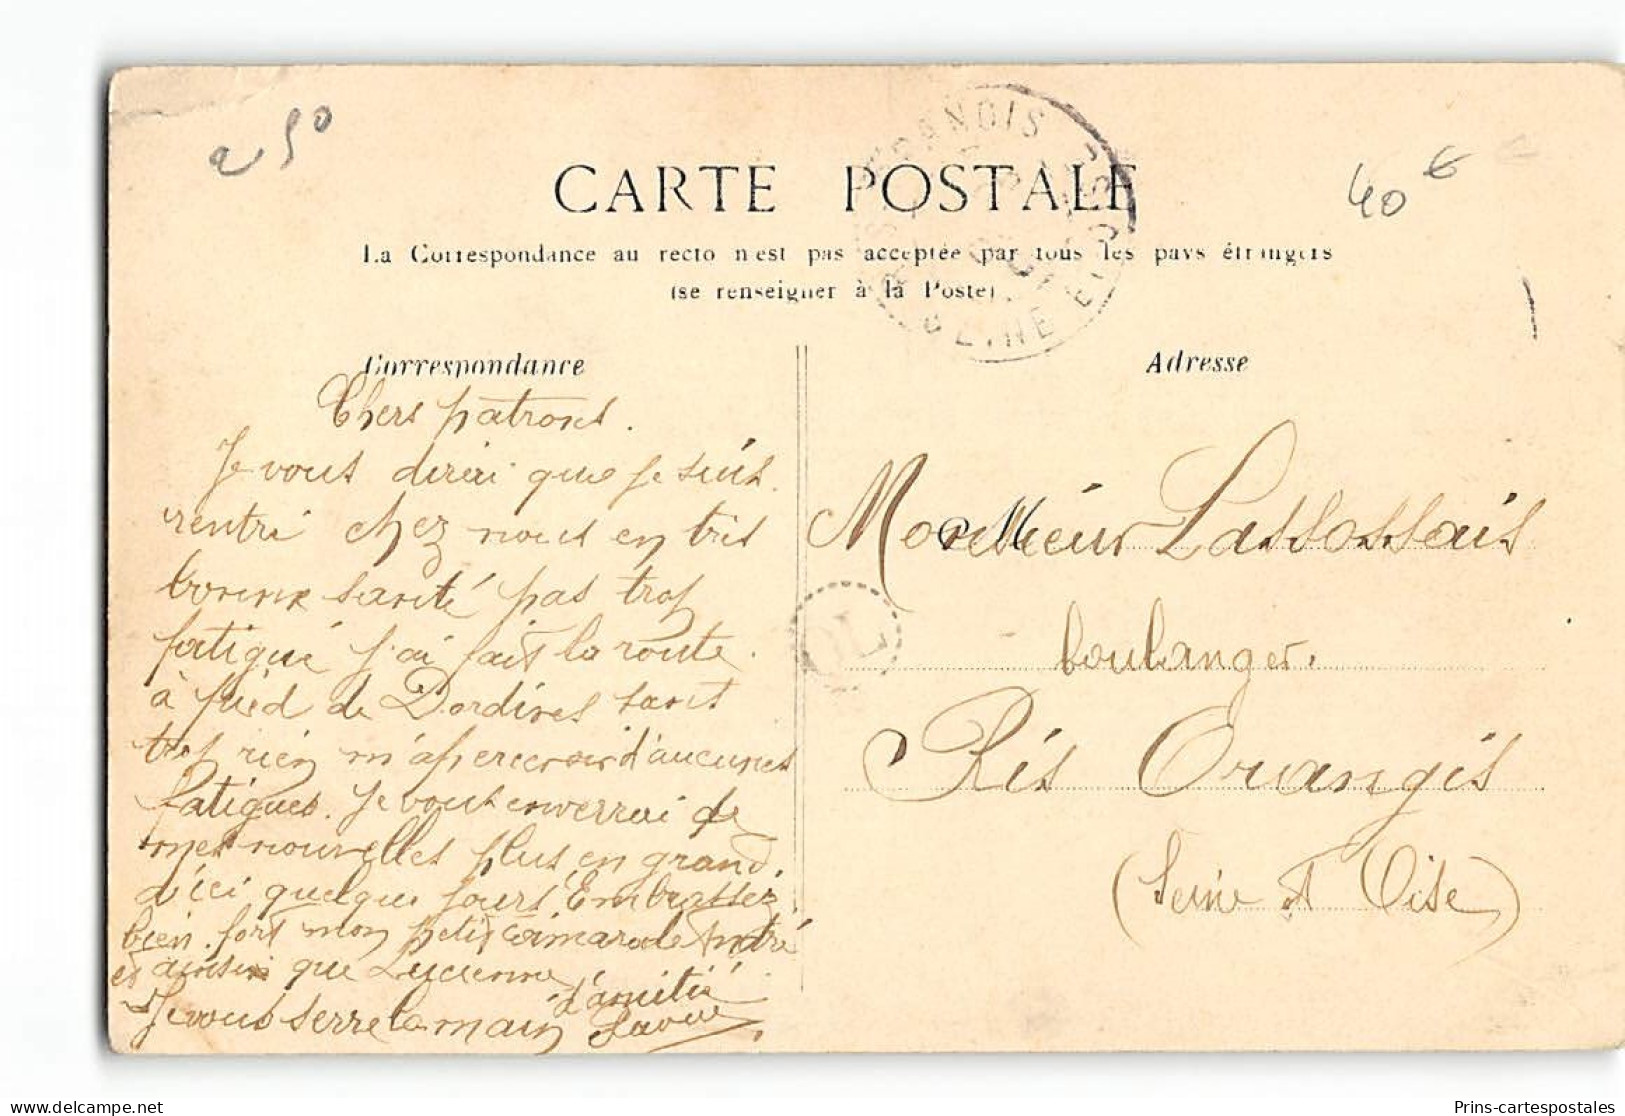 a 50
40 €
CARTE POSTALE
La Correspondance au recto n'est pas acceptée par tous les pays étrangers
(se renseigner à la Poste)
Correspondance
Adresse
Chers patrons.
Je vous dirai que je suis
rentri chez nous en tris
bonne santé pas trop
fatigué j'ai fait la route
à pied de Dordives sans
trop rien m'apercevoir d'aucunes
fatigues. Je vous enverrai de
mes nouvelles plus en grand
d'ici quelque jours Embrassez
bien fort mon petit camarade André
et ainsi que Lucienne
d'amitié
Je vous serre la main
Monsieur Lassossais
boulanger.
Ris Orangis
(Seine et Oise)
OL
ORANGIS
SEINE ET OISE
delcampe.net
Prins-cartespostales